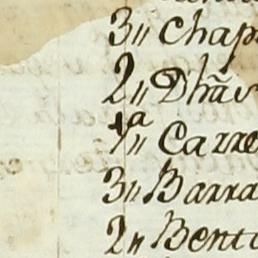 3,, Chap
2,, Dhãs
1,,ª Carre
3,, Barra
2,, Bento